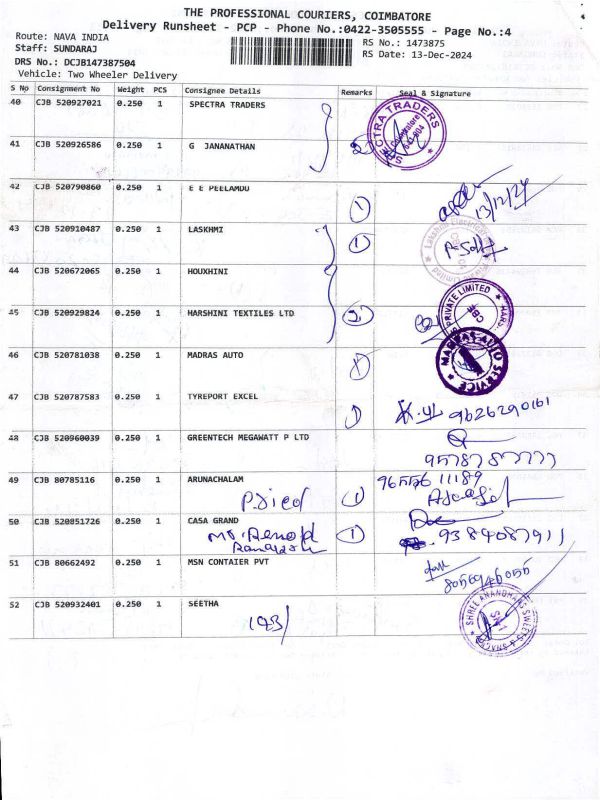 THE PROFESSIONAL COURIERS, COIMBATORE
Delivery Runsheet - PCP - Phone No.:0422-3505555 - Page No.:4
Route: NAVA INDIA
RS No.: 1473875
Staff: SUNDARAJ
RS Date: 13-Dec-2024
DRS No.: DCJB147387504
Vehicle: Two Wheeler Delivery
S No Consignment No Weight PCS Consignee Details Remarks Seal & Signature
40 CJB 520927021 0.250 1 SPECTRA TRADERS
SPECTRA TRADERS
Coimbatore
641 004
41 CJB 520926586 0.250 1 G JANANATHAN 2
42 CJB 520790860 0.250 1 E E PEELAMDU 1
13/12/24
43 CJB 520910487 0.250 1 LASKHMI 1
44 CJB 520672065 0.250 1 HOUXHINI
PRIVATE LIMITED
CBE
45 CJB 520929824 0.250 1 HARSHINI TEXTILES LTD 2
46 CJB 520781038 0.250 1 MADRAS AUTO 1
MADRAS AUTO SERVICE
47 CJB 520787583 0.250 1 TYREPORT EXCEL 1
9626290161
48 CJB 520960039 0.250 1 GREENTECH MEGAWATT P LTD
49 CJB 80785116 0.250 1 ARUNACHALAM 1
50 CJB 520851726 0.250 1 CASA GRAND 1
9384087911
51 CJB 80662492 0.250 1 MSN CONTAIER PVT
8056946055
52 CJB 520932401 0.250 1 SEETHA
193/
SHREE ANANDHAAS SWEETS & SNACKS